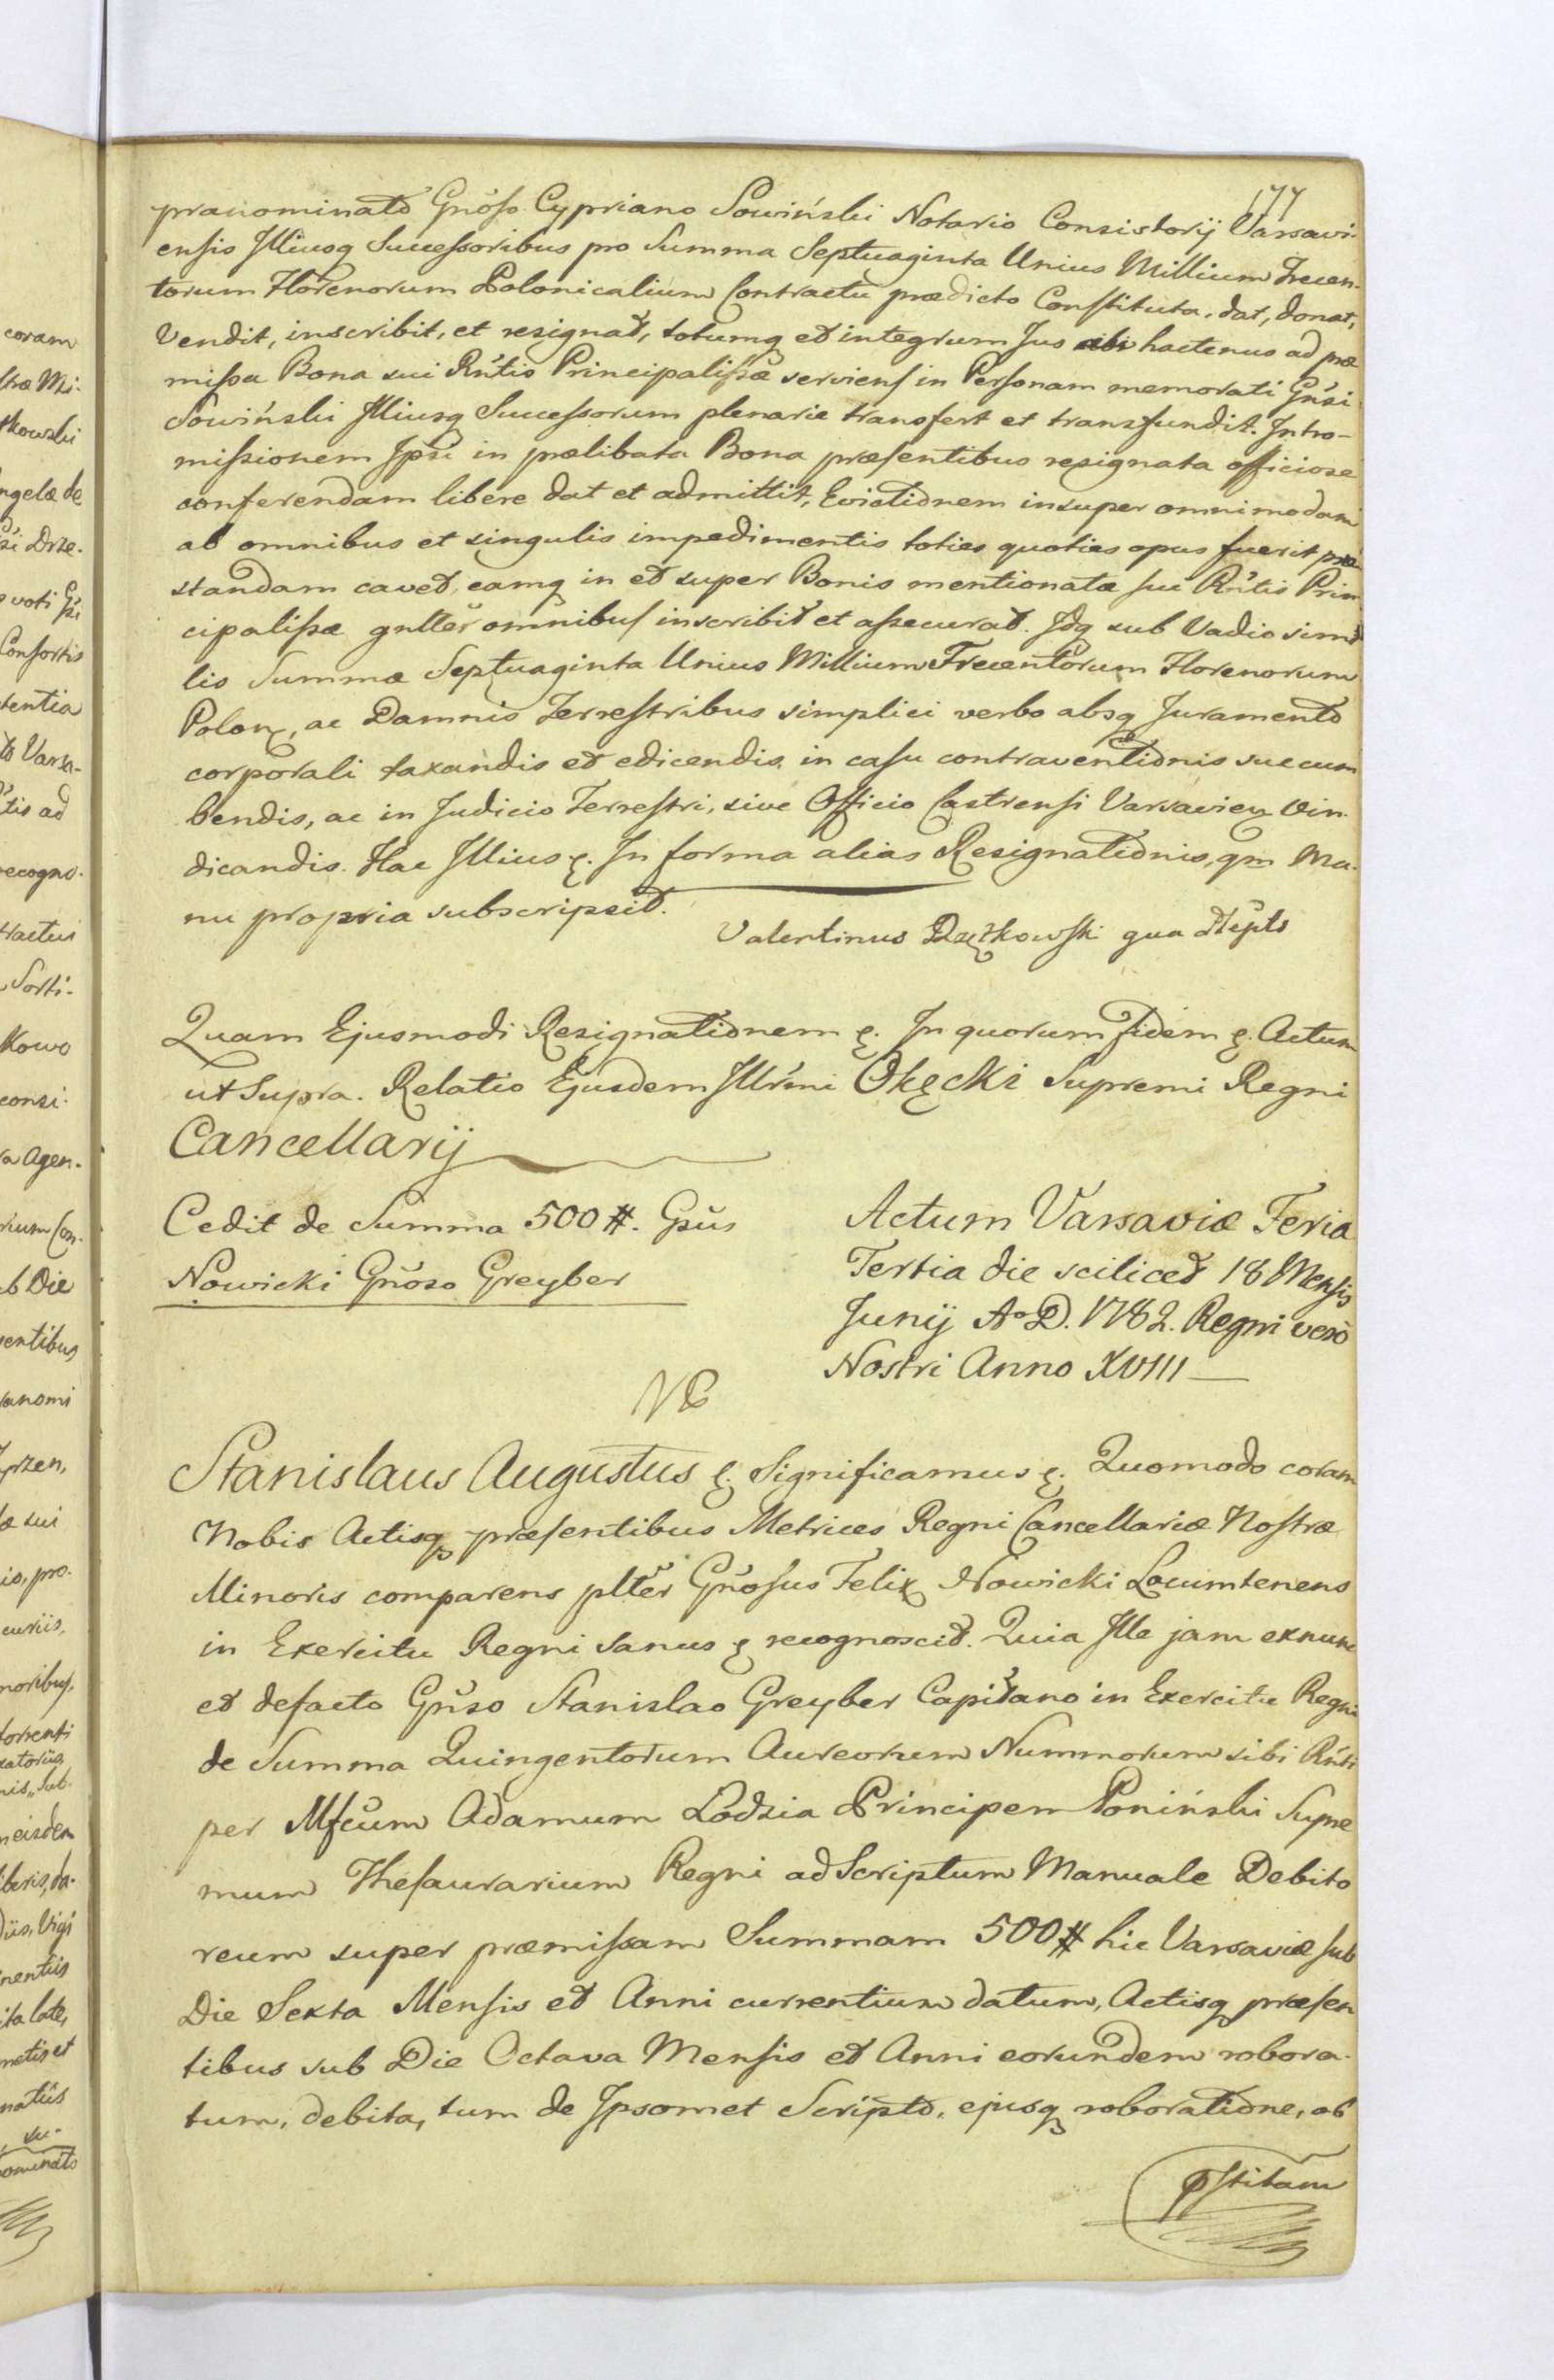 177
pranominato Gnõso Cypriano Sowiński Notario Consistorij Varsavi-
ensis Illiusq Successoribus pro Summa Septuaginta Unius Millium Trecen-
torum Florenorum Polonicalium Contractu prædicto Constituta, dat, donat,
Vendit, inscribit, et resignat, totumq et integrum Jus sibi hactenus ad præ
missa Bona sui Rñtis Principalissæ serviens in Personam memorati Gñsi
Sowiński Illiusq Successorum plenarie transfert et transfundit. Intro-
missionem Ipsi in prælibata Bona præsentibus resignata officiose
conferendam libere dat et admittit, Evictionem insuper omnimodam
ab omnibus et singulis impedimentis toties quoties opus fuerit præ
standam cavet, eamq in et super Bonis mentionatæ sui Rñtis Prin
cipalissæ gnlter omnibus inscribit et assecurat. Idq sub Vadio simi
lis Summæ Septuaginta Unius Millium Trecentorum Florenorum
Polon, ac Damnis Terrestribus simplici verbo absq Juramento
corporali taxandis et edicendis in casu contraventionis succum
bendis, ac in Judicio Terrestri, sive Officio Castrensi Varsavien vin-
dicandis. Hac Illius &. In forma alias Resignationis, qm Ma-
nu propria subscripsit.
Valentinus Drężkowski qua Plẽpts
Quam Ejusmodi Resignationem &. In quorum fidem &. Actum
ut Supra. Relatio Ejusdem Illrmi Okęcki Supremi Regni
Cancellarij
Cedit de Summa 500 #. Gsũs
Nowicki Gñoso Greyber
Actum Varsaviæ Feria
Tertia die scilicet 18 Mensis
Junij A⁰ D. 1782. Regni vero
Nostri Anno XVIII
NB
Stanislaus Augustus &. Significamus &. Quomodo coram
Nobis Actisq præsentibus Metrices Regni Cancellariæ Nostræ
Minoris comparens plter Gñosus Felix Nowicki Locumtenens
in Exercitu Regni sanus & recognoscit. Quia Ille jam exnunc
et defacto Gñso Stanislao Greyber Capitano in Exercitu Regni
de Summa Quingentorum Aureorum Nummorum sibi Rñti
per Mfcum Adamum Łodzia Principem Poniński Supre
mum Thesaurarium Regni ad Scriptum Manuale Debito
reum super præmissam Summam 500 # hic Varsaviæ sub
Die Sexta Mensis et Anni currentium datum, Actisq præsen
tibus sub Die Octava Mensis et Anni eorundem robora-
tum, debita, tum de Ipsomet Scripto, ejusq roboratione, ob